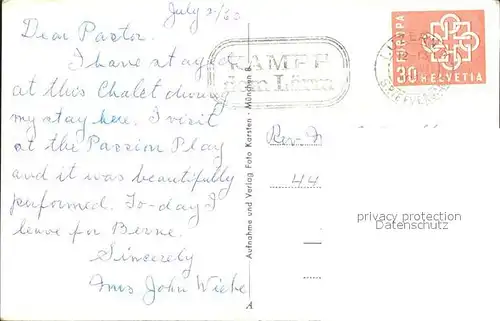 July 2/60
Dear Pastor.
I have stayed
at this Chalet during
my stay here. I visit
at the Passion Play
and it was beautifully
performed. To-day I
leave for Berne.
Sincerely
Mrs John Wiebe
KAMPF
dem Lärm
EUROPA
30 HELVETIA
LUZERN
Aufnahme und Verlag Foto Karsten · München 8
Rev.
44
privacy protection
Datenschutz
A